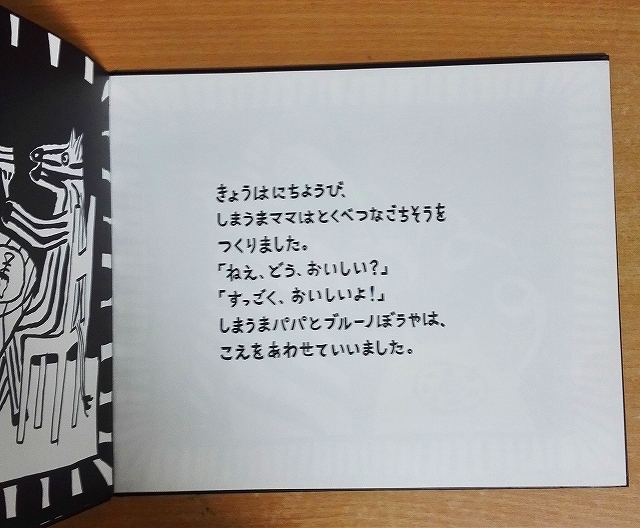 きょうはにちようび、
しまうまママはとくべつなごちそうを
つくりました。
「ねえ、どう、おいしい?」
「すっごく、おいしいよ!」
しまうまパパとブルーノぼうやは、
こえをあわせていいました。